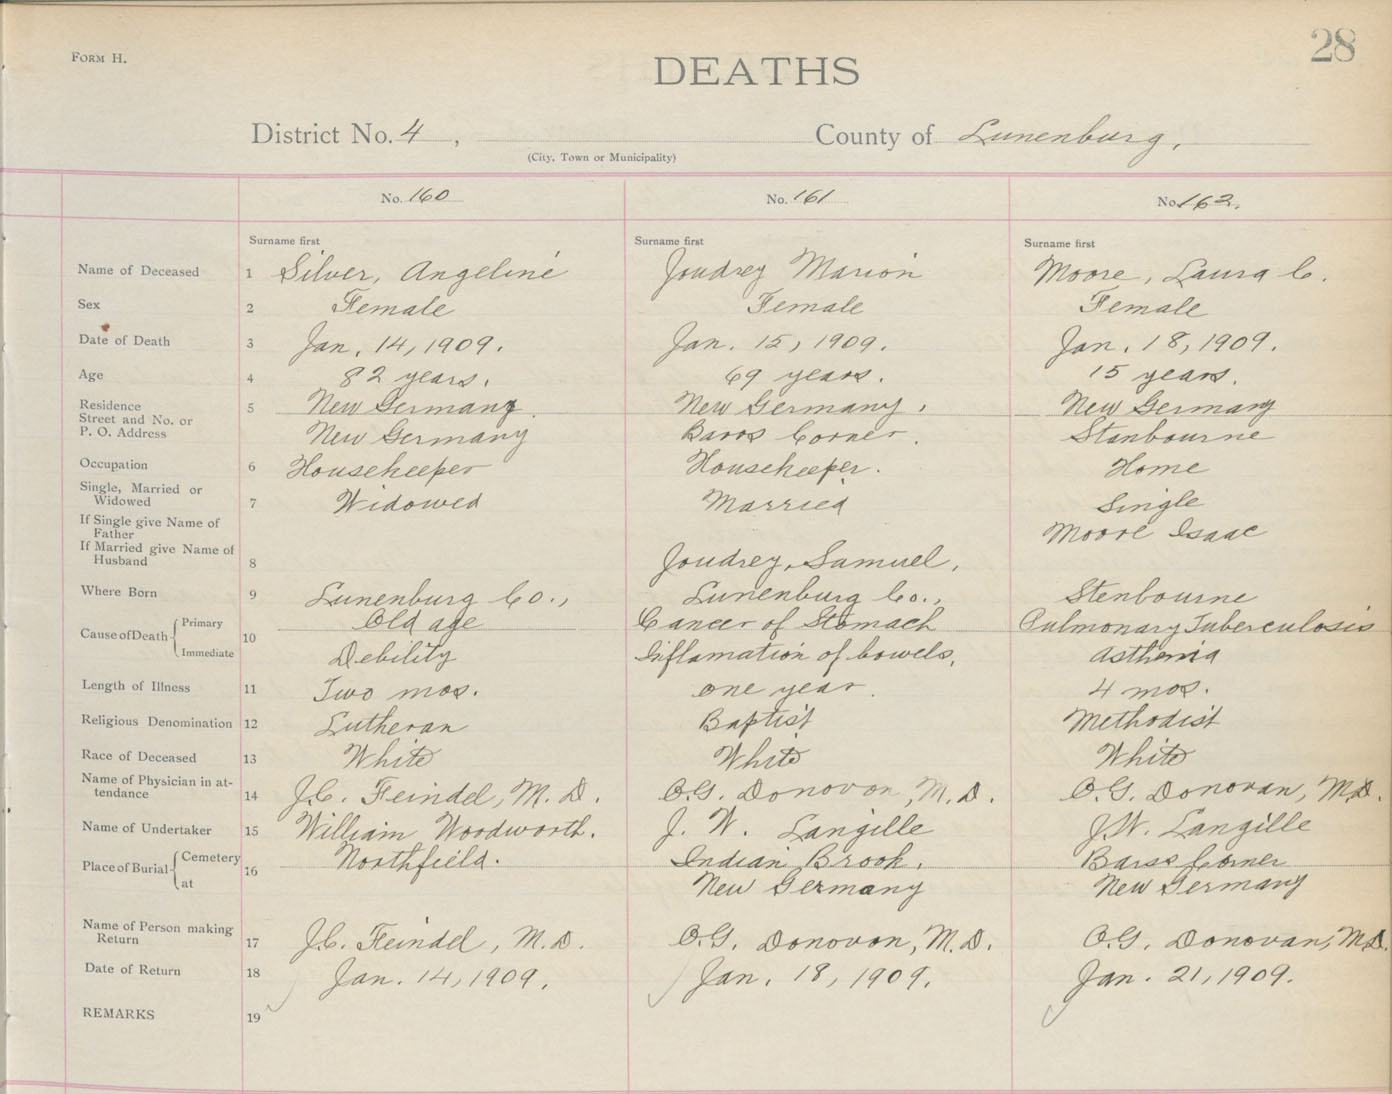 28
FORM H.
DEATHS
District No. 4, County of Lunenburg,
(City, Town or Municipality)
No. 160 No. 161 No. 162.
Surname first Surname first Surname first
Name of Deceased 1 Silver, Angeline Joudrey Marion Moore, Laura C.
Sex 2 Female Female Female
Date of Death 3 Jan. 14, 1909. Jan. 15, 1909. Jan. 18, 1909.
Age 4 82 years. 69 years. 15 years.
Residence 5 New Germany. New Germany, New Germany
Street and No. or
P. O. Address New Germany Barss Corner. Stanbourne
Occupation 6 Housekeeper Housekeeper. Home
Single, Married or
Widowed 7 Widowed Married Single
If Single give Name of
Father Moore Isaac
If Married give Name of
Husband 8 Joudrey, Samuel,
Where Born 9 Lunenburg Co., Lunenburg Co., Stenbourne
Cause of Death Primary 10 Old age Cancer of Stomach Pulmonary Tuberculosis
Immediate Debility Inflamation of bowels, Asthenia
Length of Illness 11 Two mos. one year. 4 mos.
Religious Denomination 12 Lutheran Baptist Methodist
Race of Deceased 13 White White White
Name of Physician in at-
tendance 14 J.C. Feindel, M.D. O.G. Donovon, M.D. O.G. Donovan, M.D.
Name of Undertaker 15 William Woodworth. J. W. Langille J.W. Langille
Place of Burial Cemetery 16 Northfield. Indian Brook. Barss Corner
at New Germany New Germany
Name of Person making
Return 17 J.C. Feindel, M.D. O.G. Donovon, M.D. O.G. Donovan, M.D.
Date of Return 18 Jan. 14, 1909. Jan. 18, 1909. Jan. 21, 1909.
REMARKS 19